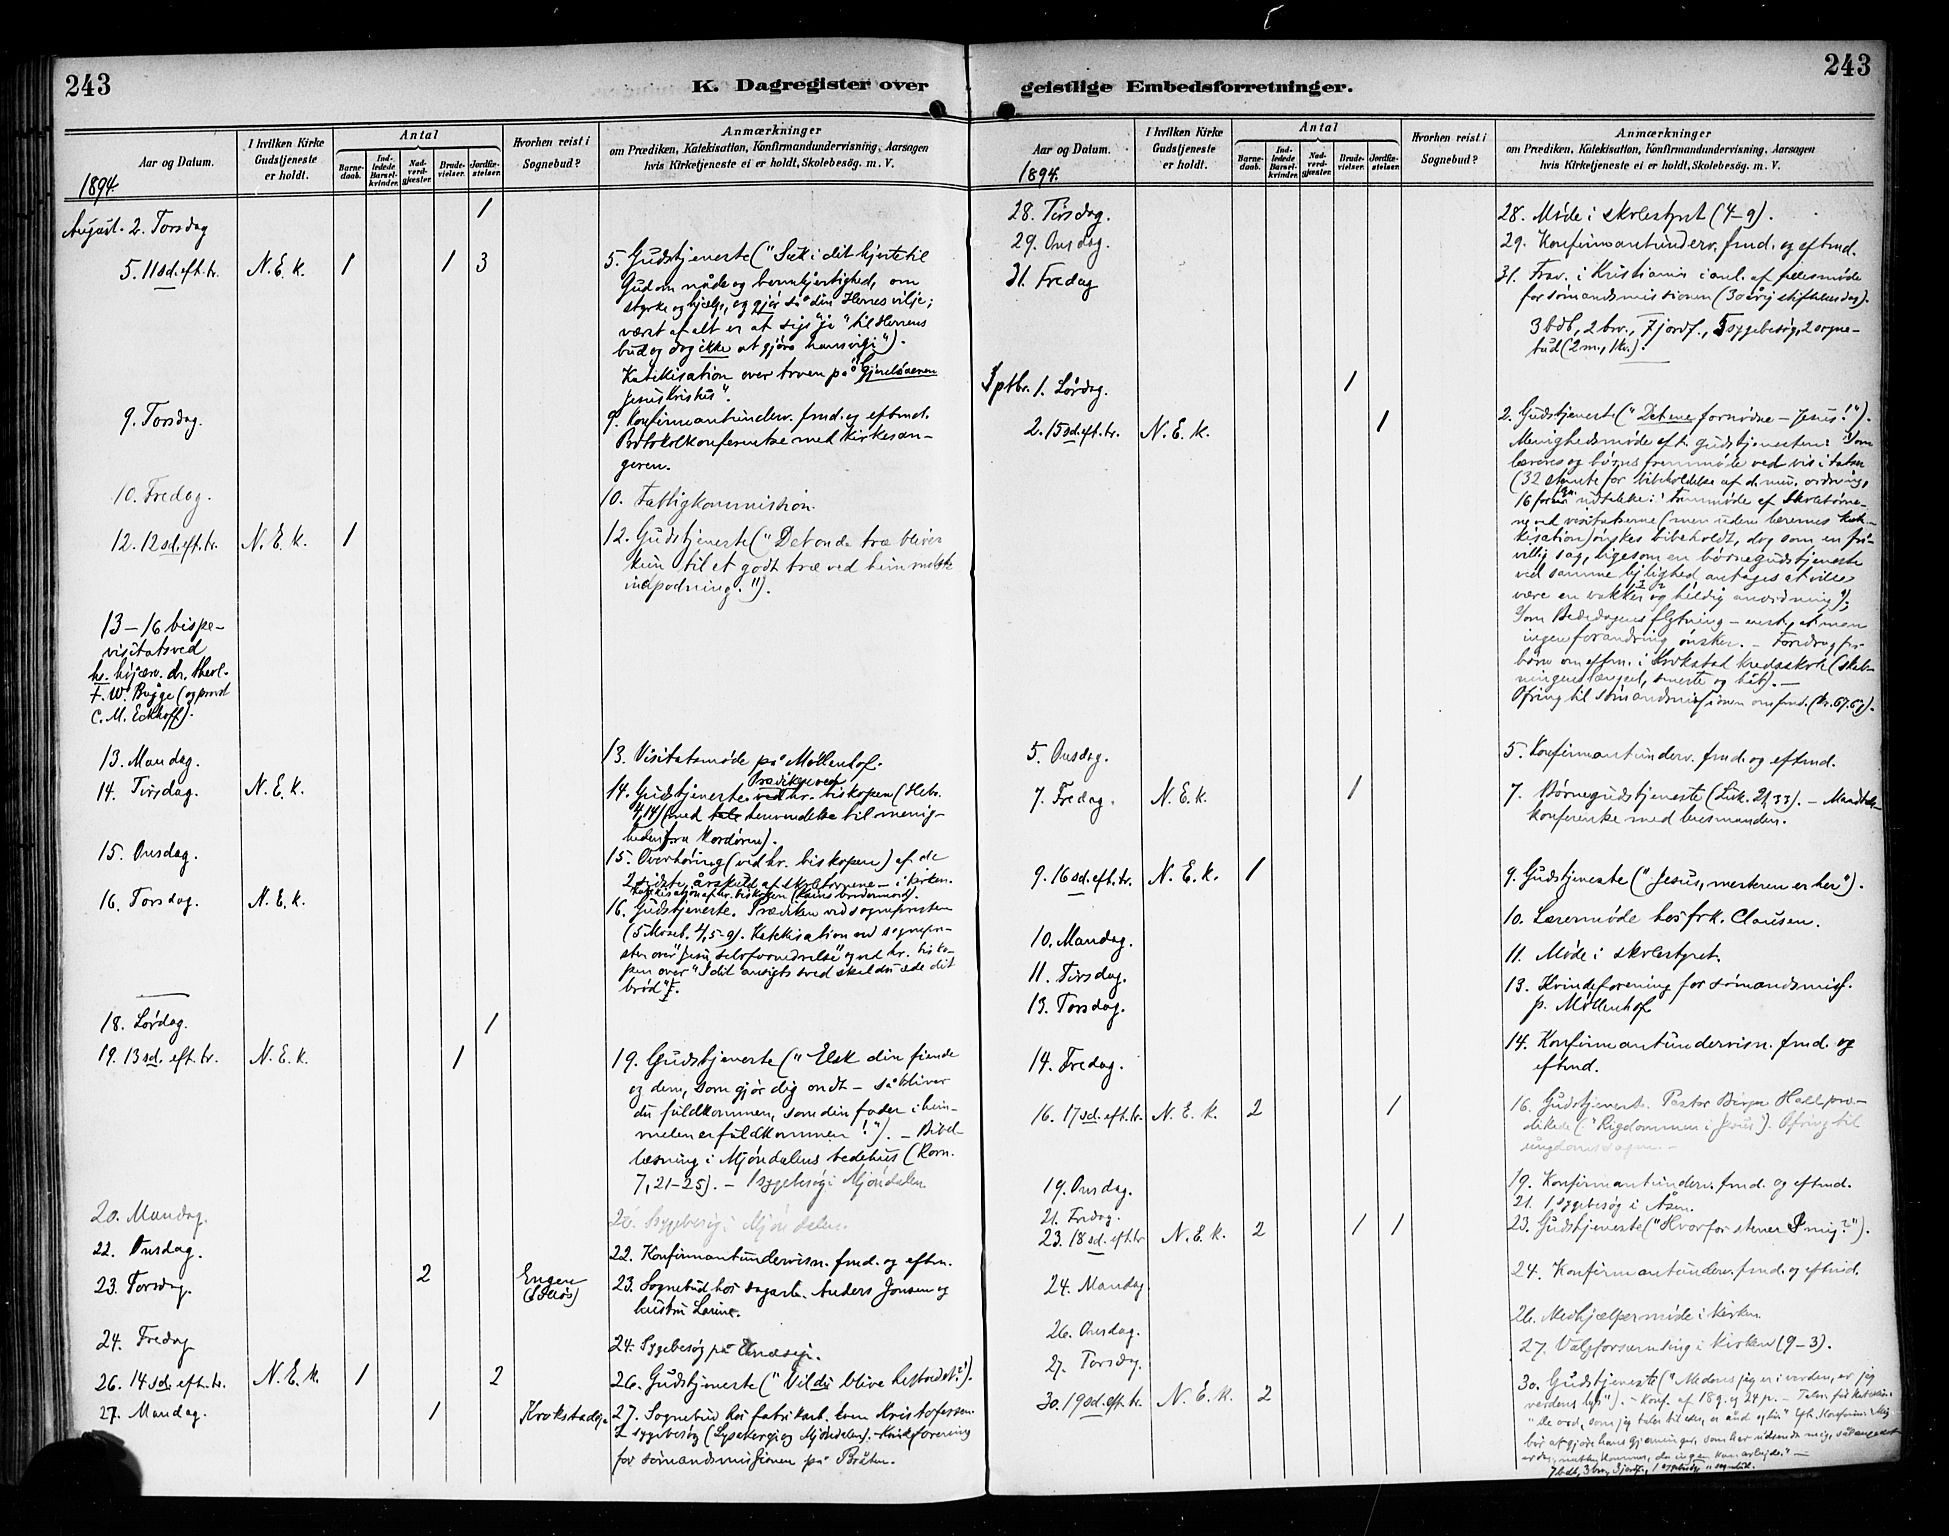 243
K. Dagregister over
Aar og Datum.
I hvilken Kirke
Gudstjeneste
er holdt.
Antal
Barne-
daab.
Ind-
ledede
Barsel-
kvinder.
Nad-
verd-
gjæster.
Brude-
vielser.
Jordfæ-
stelser.
Hvorhen reist i
Sognebud?
Anmærkninger
om Prædiken, Katekisation, Konfirmandundervisning, Aarsagen
hvis Kirketjeneste ei er holdt, Skolebesøg. m. V.
1894.
August. 2. Torsdag 1
5. 11 sd. eft. tr. N. E. k. 1 1 3 5. Gudstjeneste ("Søk i dit hjerte til
Gud om nåde og barmhjertighed, om
styrke og hjælp, og gjør så din Herres vilje;
værst af alt er at sige "ja" til Herrens
bud og dog ikke at gjøre hans vilje").
Katekisation over troen på "Gjenløseren
Jesus Kristus".
9. Torsdag. 9. Konfirmantunderv. fmd. og eftmd.
Protokolkonferentse med kirkesan-
geren.
10. Fredag. 10. Fattigkommission.
12. 12 sd. eft. tr. N. E. k. 1 12. Gudstjeneste ("Det onde træ bliver
kun til et godt træ ved himmelsk
indpodning.").
13 – 16 bispe-
visitats ved
hr. højærv. dr. theol.
F. W. Bugge (og provst
C. M. Eckhoff).
13. Mandag. 13. Visitatsmøde på Møllenhof.
14. Tirsdag. N. E. k. 14. Gudstjeneste. Prædiken ved hr. biskopen (Hebr.
4,14) (med henvendelse til menig-
heden fra kordøren).
15. Onsdag. 15. Overhøring (ved hr. biskopen) af de
2 sidste årskuld af skolebørnene – i kirken.
Katekisation af hr. biskopen (Kains brodermord).
16. Torsdag. N. E. k. 16. Gudstjeneste. Prædiken ved sognepresten
(5 Moseb. 4,5-9). Katekisation ved sognepre-
sten over "Jesu selvfornedrelse" og ved hr. bisko-
pen over "I dit ansigts sved skal du æde dit
brød".
18. Lørdag. 1
19. 13 sd. eft. tr. N. E. k. 1 19. Gudstjeneste ("Elsk din fiende
og dem, som gjør dig ondt – så bliver
du fuldkommen, som din fader i him-
melen er fuldkommen!"). – Bibel-
læsning i Mjøndalens bedehus (Rom.
7, 21–25). – 1 sygebesøg i Mjøndalen
20. Mandag. 20. Sygebesøg i Mjøndalen.
22. Onsdag. 22. Konfirmantundervisn. fmd. og eftm.
23. Torsdag. 2 Engene 23. Sognebud hos dagarb. Anders Jonsen og
hustru Larine.
24. Fredag 24. Sygebesøg på
26. 14 sd. eft. tr. N. E. k. 1 2 26. Gudstjeneste ("Vil du blive helbredet?").
27. Mandag. 1 Krokstadeje 27. Sognebud hos fabrikarb. Even Kristofersen
2 sygebesøg ( og Mjøndalen). Kvindeforening
for sømandsmissionen på Bråten.
243
geistlige Embedsforretninger.
Aar og Datum.
I hvilken Kirke
Gudstjeneste
er holdt.
Antal
Barne-
daab.
Ind-
ledede
Barsel-
kvinder.
Nad-
verd-
gjæster.
Brude-
vielser.
Jordfæ-
stelser.
Hvorhen reist i
Sognebud?
Anmærkninger
om Prædiken, Katekisation, Konfirmandundervisning, Aarsagen
hvis Kirketjeneste ei er holdt, Skolebesøg. m. V.
1894.
28. Tirsdag. 28. Møde i skolestyret (4–9).
29. Onsdag. 29. Konfirmantunderv. fmd. og eftmd.
31. Fredag 31. Frav. i Kristiania i anl. af fællesmøde
for sømandsmissionen (30 årig stiftelsesdag).
3 bdb, 2 brv., 7 jordf., 5 sygebesøg, 2 sogne-
bud (2 m., 1 kv.).
Sptbr. 1. Lørdag. 1
2. 15 sd. eft. tr. N. E. k. 1 2. Gudstjeneste ("Det ene fornødne – Jesus!").
Menighedsmøde eft. gudstjenesten: 1) om
læreres og børns fremmøde ved visitatsen
(32 stemte for bibeholdelse af d. nuv. ordning,
16 for en udtalelse: "fremmøde af skolebørne-
ne ved visitatserne (men uden lærernes kate-
kisation) ønskes bibeholdt, dog som en fri-
villig sag, ligesom en børnegudstjeneste
ved samme lejlighed antages at ville
være en vakker og heldig anordning");
2) om Bededagens flytning – enst., at man
ingen forandring ønsker. – Foredrag for
børn om eftm. i Krokstad kredsskole (skab-
ningens længsel, smerte og håb). –
Ofring til sømandsmissionen om fmd. (kr. 67.67).
5. Onsdag. 5. Konfirmantunderv. fmd. og eftmd.
7. Fredag. N. E. k. 1 7. Børnegudstjeneste (Luk. 21,33). – Mandtals-
konferentse med lensmanden.
9. 16 sd. eft. tr. N. E. k. 1 9. Gudstjeneste ("Jesus, mesteren er her").
10. Mandag. 10. Lærermøde hos frk. Clausen.
11. Tirsdag. 11. Møde i skolestyret.
13. Torsdag. 13. Kvindeforening for sømandsmiss.
p. Møllenhof
14. Fredag. 14. Konfirmantundervisn. fmd. og
eftmd.
16. 17 sd. eft. tr. N. E. k. 2 1 16. Gudstjeneste. Pastor Birger Hall præ-
dikede ("Rigdommen i Jesus"). Ofring til
ungdomssagen. –
19. Onsdag. 19. Konfirmantunderv. fmd. og eftmd.
21. Fredag. 21. 1 sygebesøg i Åsen.
23. 18 sd. eft. tr. N. E. k. 2 1 1 23. Gudstjeneste ("Hvorfor stener I mig?").
24. Mandag 24. Konfirmantunderv. fmd. og eftmd.
26. Onsdag. 26. Medhjælpermøde i kirken.
27. Torsdag. 27. Valgforsamling i kirken (9–3).
30. 19 sd. eft. tr. N. E. k. 2 30. Gudstjeneste ("Medens jeg er i verden, er jeg
verdens lys"). – Konf. af 18 g. og 24 p. –
"De ord, som jeg taler til eder, er ånd og liv."
bør at gjøre hans gjerninger, som har udsendt mig, så længe det
er dag; natten kommer, da ingen kan arbejde." –
7 bdb, 3 brv, 3 jordf.,